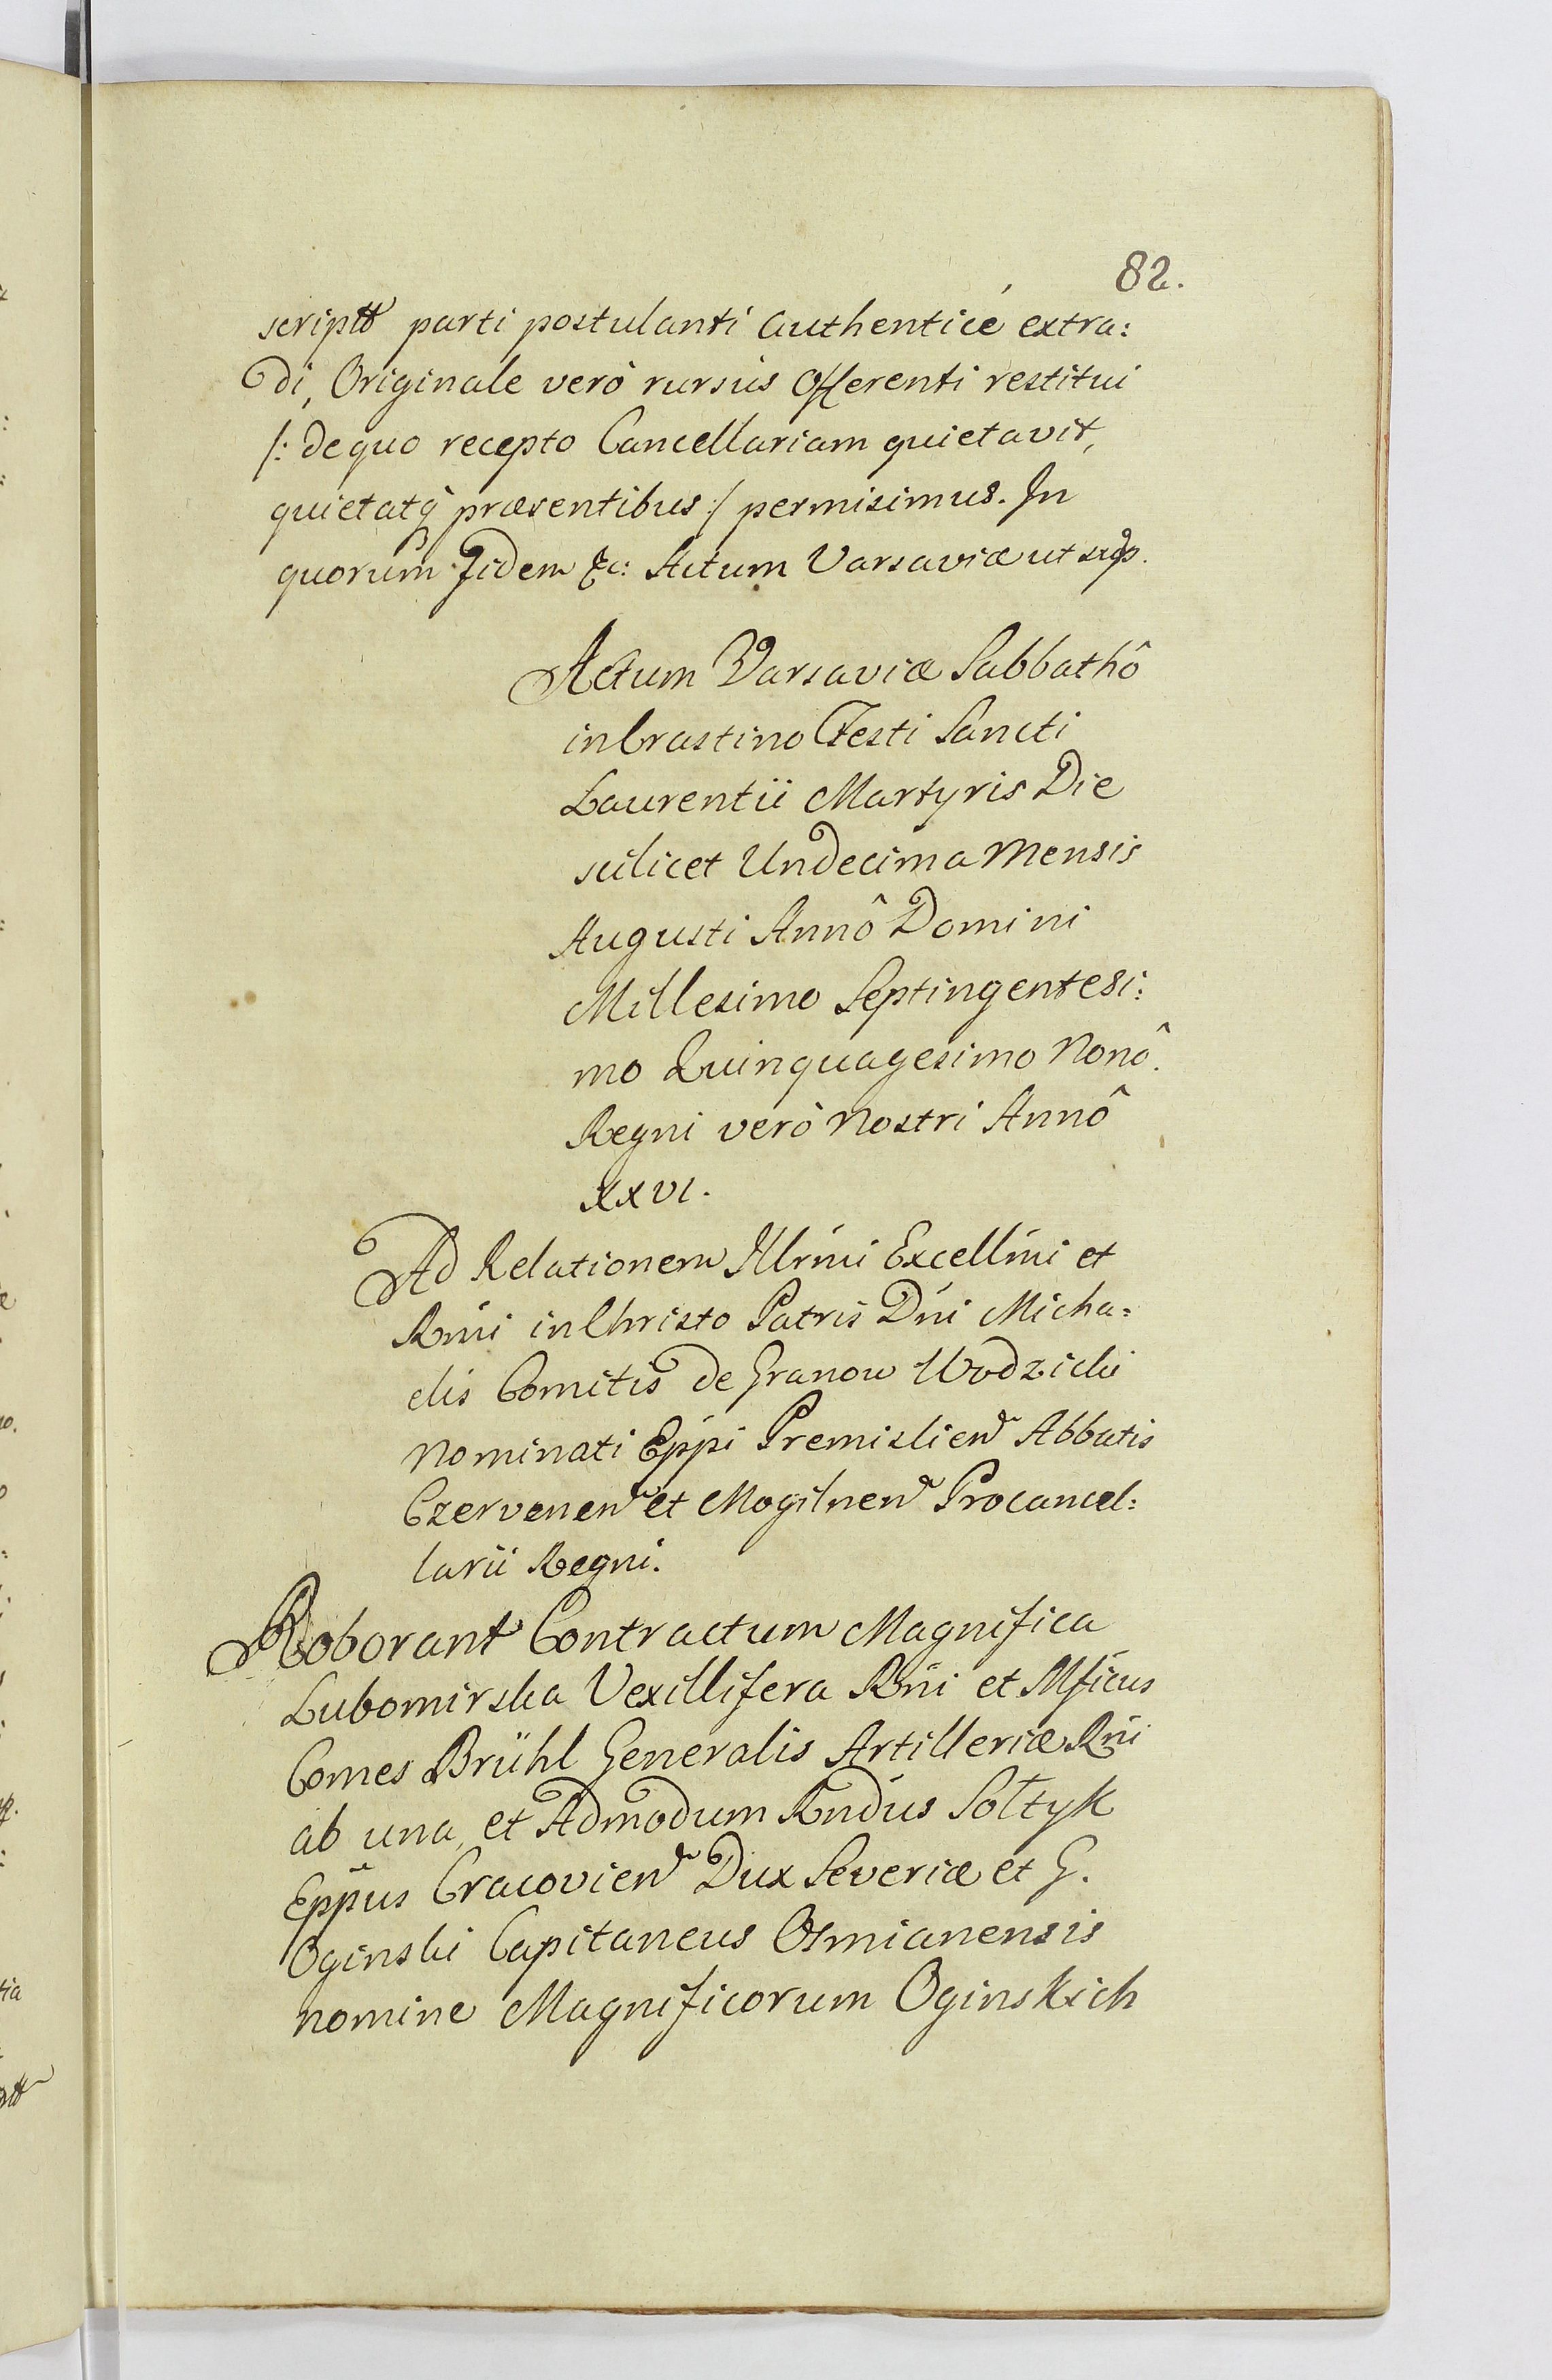 82.
scriptt parti postulanti Authenticé extra:
di, Originale verò rursùs Offerenti restitui
/: de quo recepto Cancellariam quietavit,
quietatq̀ præsentibus :/ permisimus. In
quorum Fidem &c: Actum Varsaviæ ut sup.
Actum Varsaviæ Sabbathô
in Crastino Festi Sancti
Laurentii Martyris Die
scilicet Undecima Mensis
Augusti Annô Domini
Millesimo Septingentesi:
mo Quinquagesimo Nonô.
Regni verò Nostri Annô
XXVI.
Ad Relationem Illrmi Excellmi et
Rmi in Christo Patris Dni Micha:
elis Comitis de Granow Wodzicki
Nominati Eppi Premislien Abbatis
Czervenen et Mogilnen Procancel:
larii Regni.
Roborant Contractum Magnifica
Lubomirska Vexillifera Rni et Mficus
Comes Brühl Generalis Artilleriæ Rni
ab una, et Admodum Rndus Sołtyk
Eppus Cracovien Dux Severiæ et G.
Oginski Capitaneus Osmianensis
nomine Magnificorum Oginskich